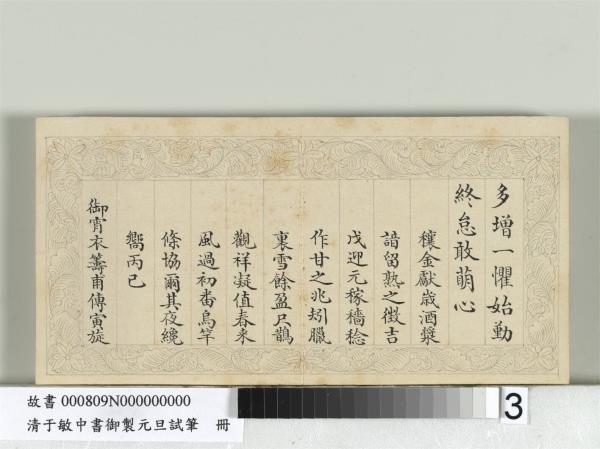 多增一懼始勤
終怠敢萌心
穰金獻歲酒漿
諳留熟之徵吉
戊迎元稼穡稔
作甘之兆蚓臘
裏雪餘盈尺鵲
觀祥凝值春來
風過初番鳥竿
條協爾其夜纔
嚮丙已
御宵衣籌甫傳寅旋
故書 000809N000000000
清于敏中書御製元旦試筆 冊
3